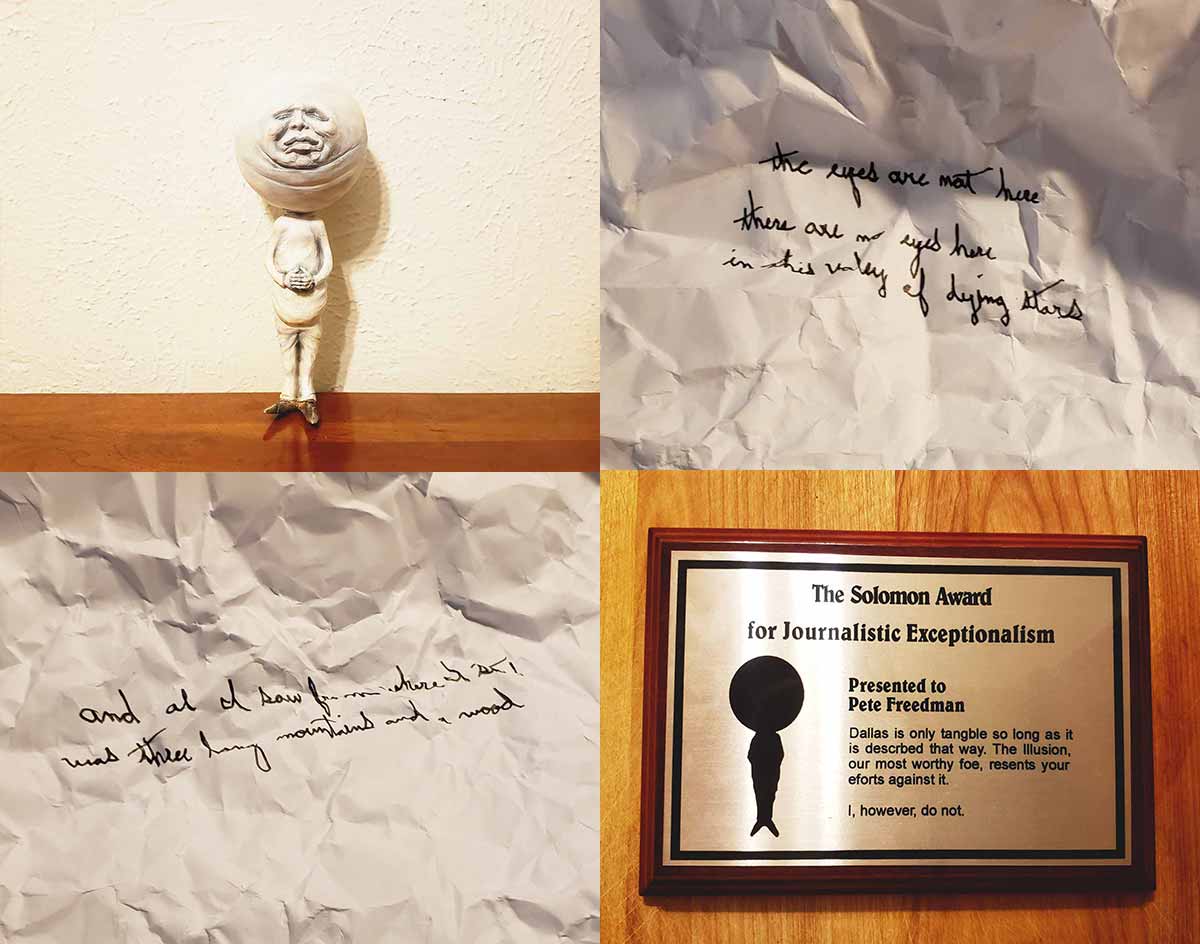 the eyes are not here
there are no eyes here
in this valley of dying stars
and al I saw from where I
was three long mountains and a wood
The Solomon Award
for Journalistic Exceptionalism
Presented to
Pete Freedman
Dallas is only tangble so long as it
is descrbed that way. The Illusion,
our most worthy foe, resents your
eforts against it.
I, however, do not.